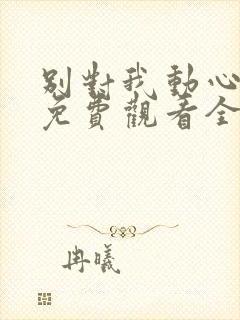 別對我動心
免費觀看全
冉曦